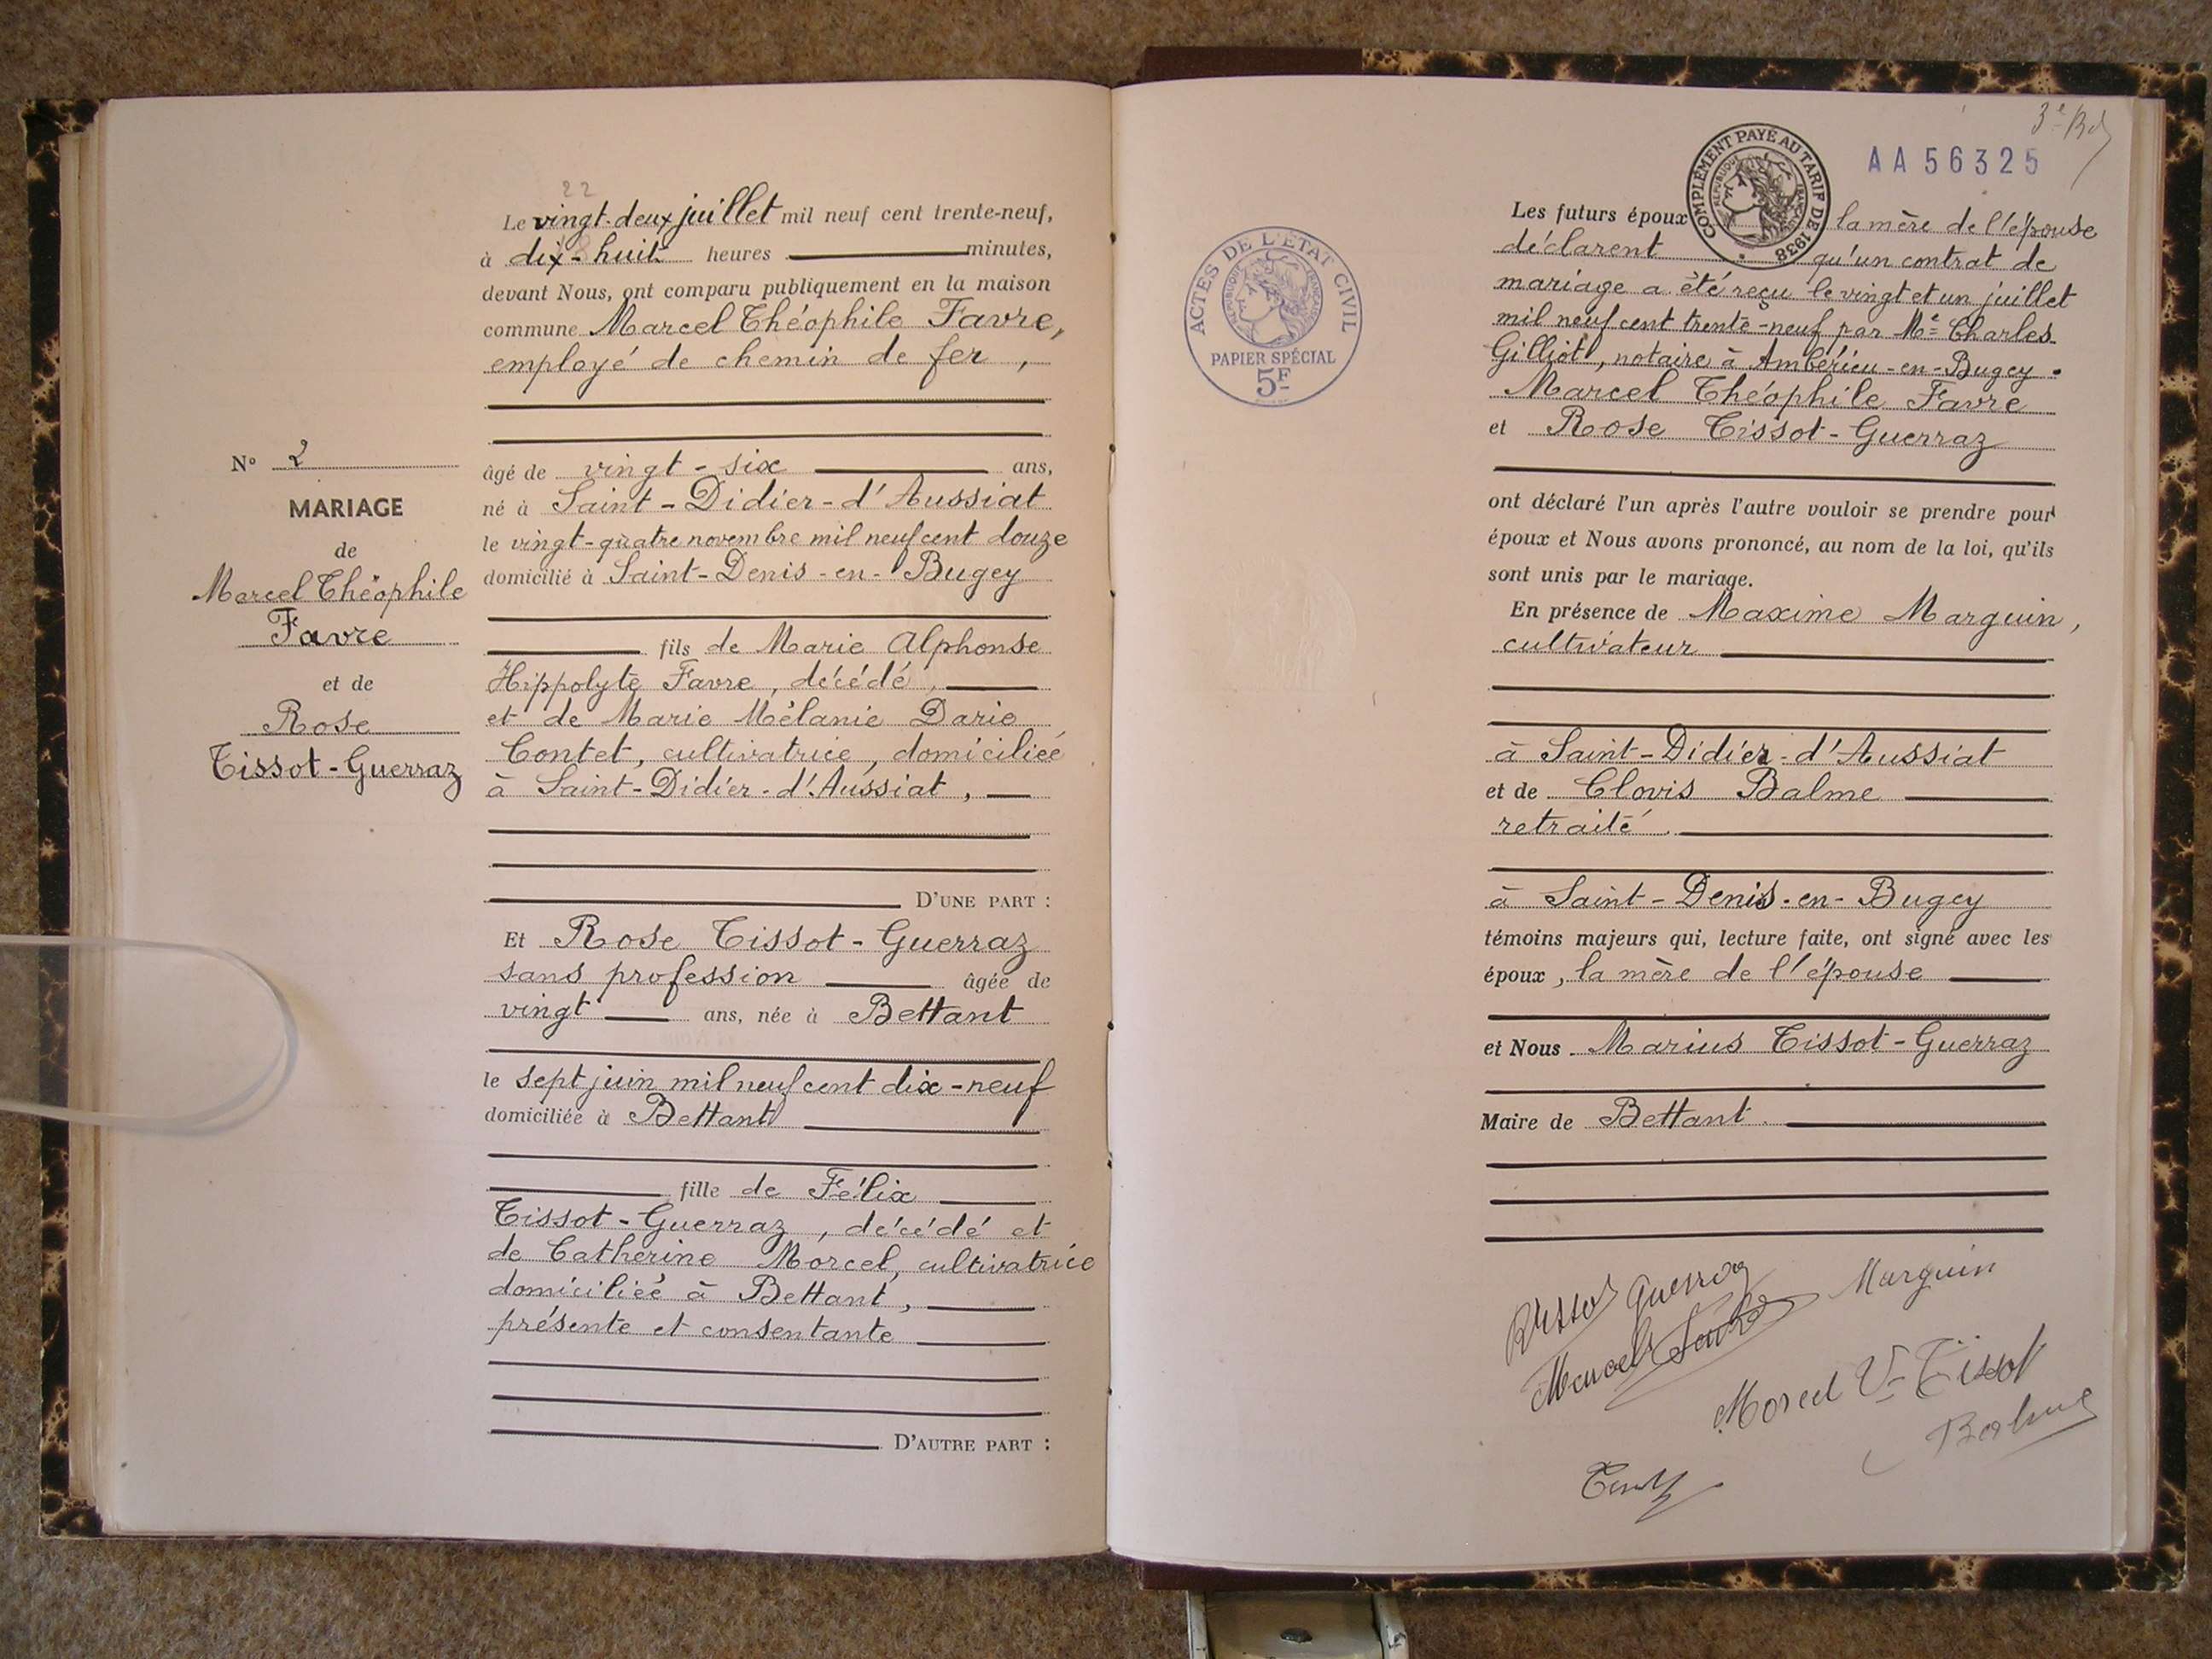 22
Le vingt-deux juillet mil neuf cent trente-neuf,
à dix-huit heures minutes,
devant Nous, ont comparu publiquement en la maison
commune Marcel Théophile Favre,
employé de chemin de fer,
âgé de vingt-six ans,
né à Saint-Didier-d'Aussiat
le vingt-quatre novembre mil neuf cent douze
domicilié à Saint-Denis-en-Bugey
fils de Marie Alphonse
Hippolyte Favre, décédé,
et de Marie Mélanie Darie
Contet, cultivatrice, domiciliée
à Saint-Didier-d'Aussiat,
D'UNE PART :
Et Rose Tissot-Guerraz
sans profession âgée de
vingt ans, née à Bettant
le sept juin mil neuf cent dix-neuf
domiciliée à Bettant
fille de Félix
Tissot-Guerraz, décédé et
de Catherine Morcel, cultivatrice
domiciliée à Bettant,
présente et consentante
D'AUTRE PART :
N° 2
MARIAGE
de
Marcel Théophile
Favre
et de
Rose
Tissot-Guerraz
ACTES DE L'ÉTAT CIVIL
RÉPUBLIQUE FRANÇAISE
PAPIER SPÉCIAL
5F
3e
AA56325
COMPLÉMENT PAYÉ AU TARIF DE 1938
RÉPUBLIQUE FRANÇAISE
Les futurs époux la mère de l'épouse
déclarent qu'un contrat de
mariage a été reçu le vingt et un juillet
mil neuf cent trente-neuf par Me Charles
Gilliot, notaire à Ambérieu-en-Bugey.
Marcel Théophile Favre
et Rose Tissot-Guerraz
ont déclaré l'un après l'autre vouloir se prendre pour
époux et Nous avons prononcé, au nom de la loi, qu'ils
sont unis par le mariage.
En présence de Maxime Marguin,
cultivateur
à Saint-Didier-d'Aussiat
et de Clovis Balme
retraité
à Saint-Denis-en-Bugey
témoins majeurs qui, lecture faite, ont signé avec les
époux, la mère de l'épouse
et Nous Marius Tissot-Guerraz
Maire de Bettant
RTissot Guerraz
Marguin
Marcel Favre
Morcel Ve Tissot
Balme